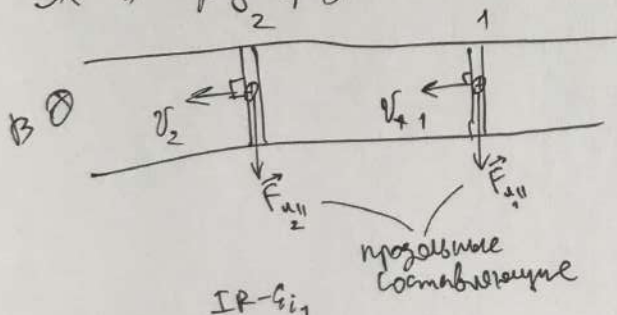 2 1
B ⊗
v₂ v₁
F⃗л∥₂ F⃗л∥₁
продольные
составляющие
IR-εi₁